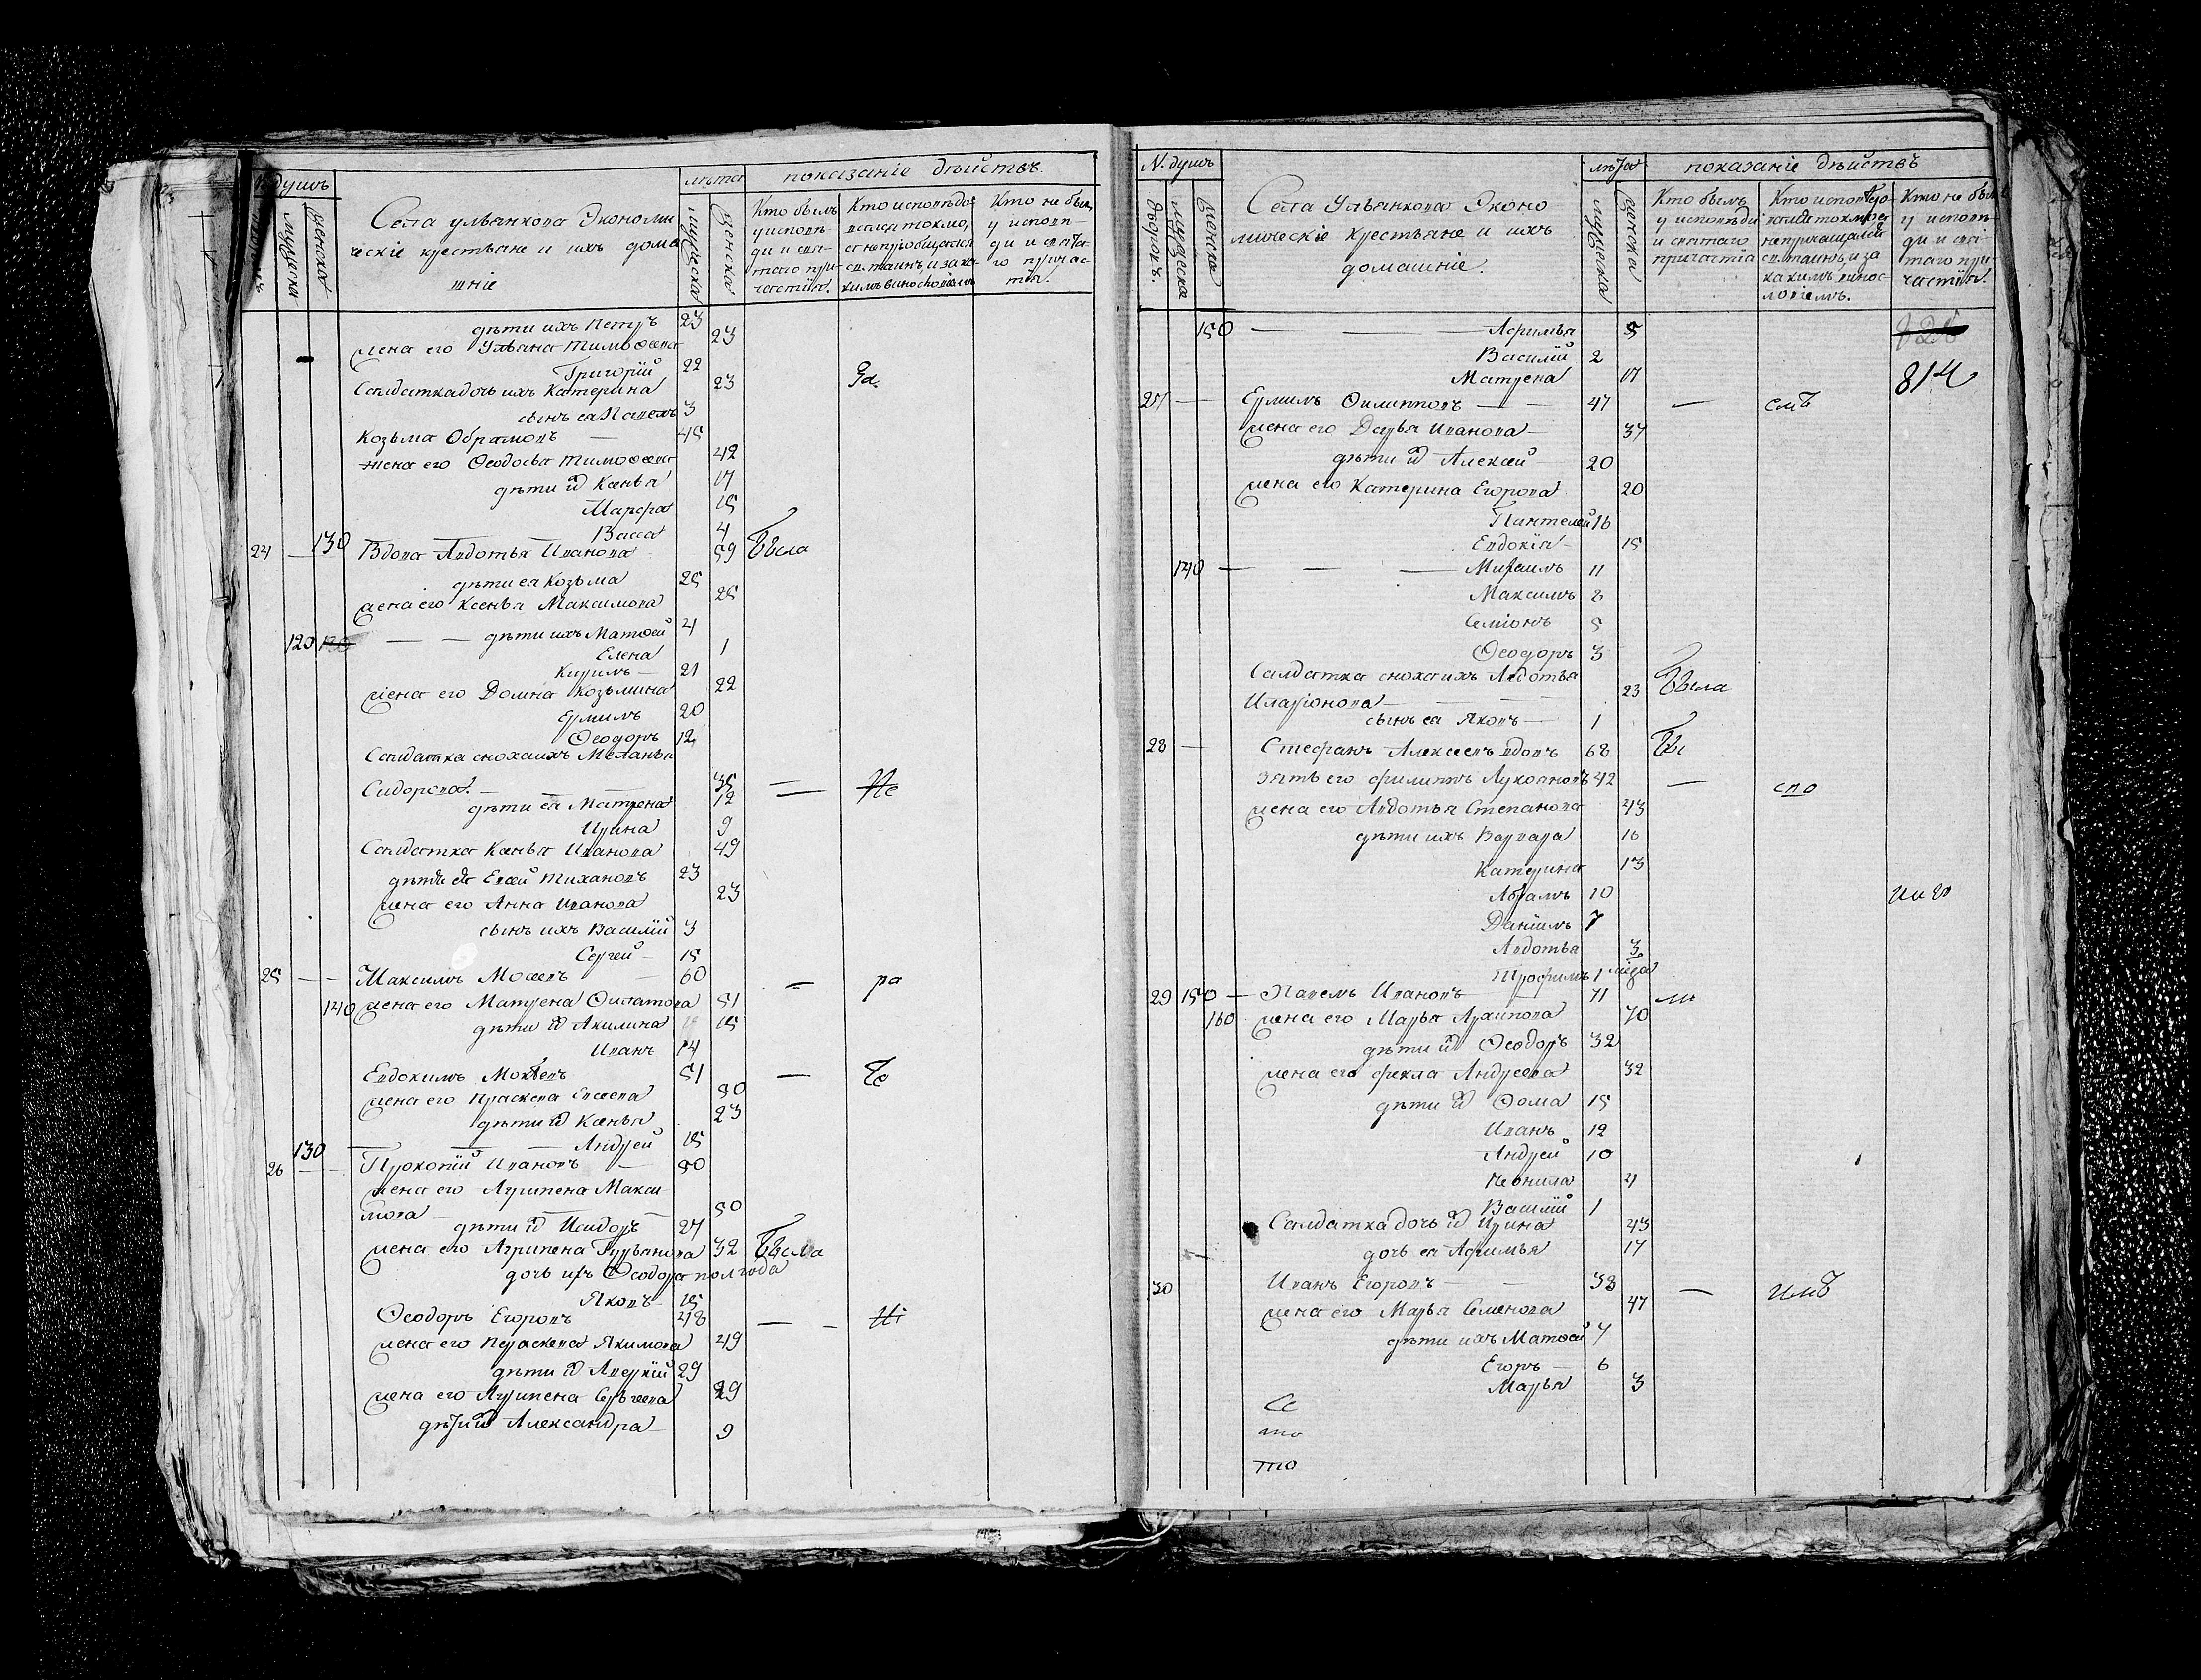 № душъ
лѣта
показаніе дѣйствъ.
мужеска
женска
Села ульянкова Экономи
ческіе крестьяне и ихъ дома
шніе
мужеска
женска
Кто былъ
у исповѣ-
ди и свя-
таго при-
частія.
Кто исповѣдо-
вался токмо,
а не пріобщался
св. таинъ, и за ка-
кимъ винословіемъ
Кто не былъ
у исповѣ-
ди и свята-
го причас-
тія.
дѣти ихъ Петръ 23
жена его Ульяна Тимофеева 23
Григорій 22
Салдатка дочь ихъ Катерина 23
сынъ ея Павелъ 3
Козьма Обрамовъ — 45
жена его Ѳеодосья Тимоѳеева 42
дѣти их Ксенья 17
Марфа 15
130 — Васса 4
24 — Вдова Авдотья Иванова 59 Была
дѣти ея Козьма 25
жена его Ксенья Максимова 25
120 — — дѣти ихъ Матѳей 4
Елена 1
Кирилъ — 21
жена его Домна Козьмина 22
Ермилъ 20
Ѳеодоръ 12
Салдатка сноха ихъ Меланья
Сидорова — 35 —
дѣти ея Матрена 12
Ирина 9
Салдатка Ксенья Иванова 49
дѣти ея Евсей Тихановъ 23
жена его Анна Иванова 23
сынъ ихъ Василій 3
Сергей — 15
25 — — Максимъ Мосеевъ — 60 — ра
140 жена его Матрена Филатова 51
дѣти их Акилина 15
Иванъ 14
Евдокимъ Мокѣевъ 51 —
жена его Праскева Евсеева 50
дѣти их Ксенья 23
130 — — — Андрей 15
26 — — Прокопій Ивановъ — 50
жена его Агрипена Макси-
мова — 50
дѣти их Исидоръ 27
жена его Агрипена Гурьянова 32 Была
дочь ихъ Ѳеодора полгода
Яковъ — 15
Ѳеодоръ Егоровъ 48 — —
жена его Параскева Якимова 49
дѣти их Аверкій 29
жена его Агрипена Сергеева 29
дѣти их Александра 9
№ душъ
лѣта
показаніе дѣйствъ
дворовъ.
мужеска
женска
Села Ульянкова Эконо
мическіе крестьяне и ихъ
домашніе.
мужеска
женска
Кто былъ
у исповѣди
и святаго
причастія
Кто исповѣдо-
вался токмо, а
не причащался
св. таинъ, и за
какимъ винос-
ловіемъ.
Кто не былъ
у исповѣ-
ди и свя-
таго при-
частія.
150 — — Афимья 5
Василій 2
Матрена 17
814
27 — Ермилъ Филипповъ — — 47 — смъ
жена его Дарья Иванова — 37
дѣти их Алексей — 20
жена его Катерина Егорова 20
Пантелей 16
Евдокія — 15
140 — — — Михаилъ 11
Максимъ 8
Семіонъ 5
Ѳеодоръ 3
Салдатка сноха ихъ Авдотья
Иларіонова — — — 23 Была
сынъ ея Яковъ — 1
28 — Стефанъ Алексеевъ вдовъ 68
зять его Филиппъ Лукояновъ 42 — спо
жена его Авдотья Степанова 43
дѣти ихъ Варвара 16
Катерина 13
Абрамъ 10
Даніилъ 7
Авдотья 3
Трофимъ 1
29 150 — Павелъ Ивановъ — 71
160 жена его Марья Архипова 70
дѣти их Ѳеодоръ 32
жена его Фекла Андреева 32
дѣти их Ѳома 15
Иванъ 12
Андрей 10
Неонила 4
Василій 1
Салдатка дочь их Ирина 43
дочь ея Афимья 17
30 Иванъ Егоровъ — — 38 —
жена его Марья Семенова 47
дѣти ихъ Матѳей 7
Егоръ — 6
Марья 3
то